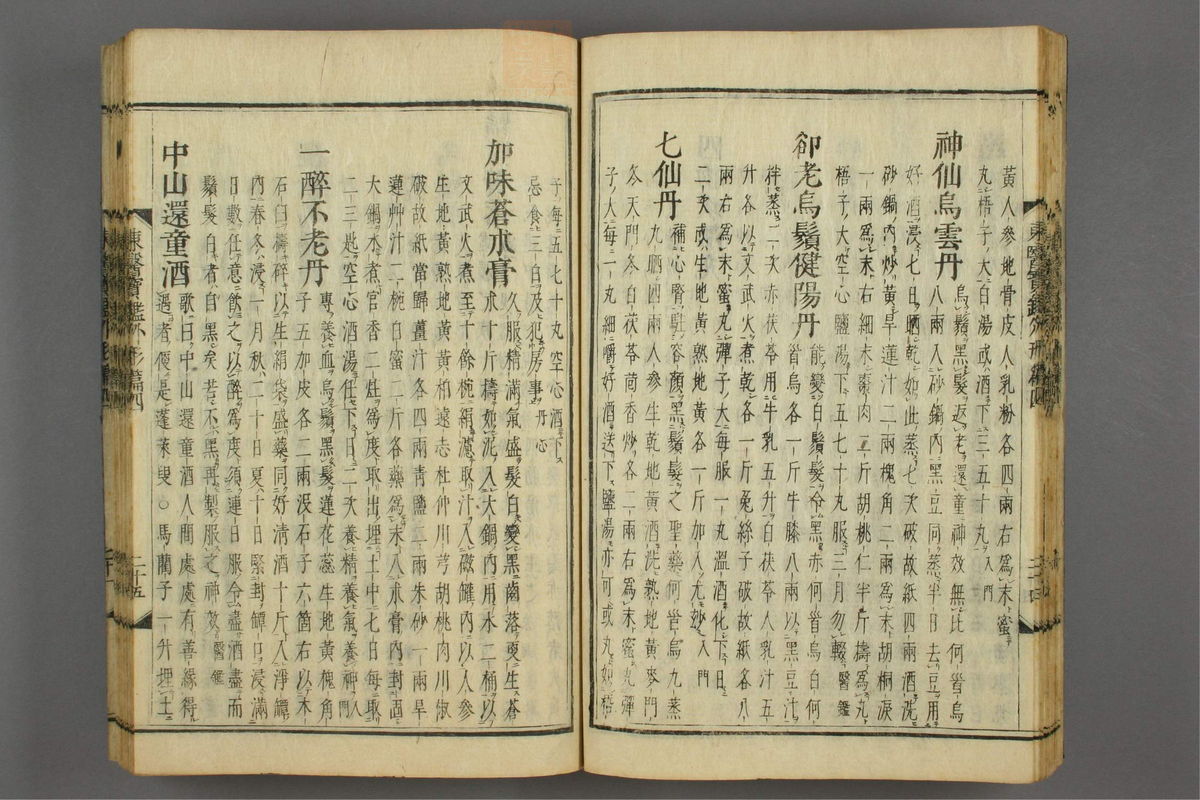 黃人參地骨皮人乳粉各四兩右爲末蜜
丸梧子大白湯或酒下三五十丸入門
神仙烏雲丹 烏鬚黑髮返老還童神效無比何首烏
八兩入砂鍋內黑豆同蒸半日去豆用
好酒浸七日晒乾如此蒸七次破故紙四兩酒洗
砂鍋內炒黃旱蓮汁二兩槐角二兩爲末胡桐淚
一兩爲末右細末棗肉二斤胡桃仁半斤擣爲丸
梧子大空心鹽湯下五七十丸服三月勿輟醫鑑
卻老烏鬚健陽丹 能變白鬚髮令黑赤何首烏白何
首烏各一斤牛膝八兩以黑豆汁
拌蒸二次赤茯苓用牛乳五升白茯苓人乳汁五
升各以文武火煮乾各一斤兔絲子破故紙各八
兩右爲末蜜丸彈子大每服一丸溫酒化下日
二次或生地黃熟地黃各一斤加入尤妙入門
七仙丹 補心腎駐容顏黑鬚髮之聖藥何首烏九蒸
九晒四兩人參生乾地黃酒洗熟地黃麥門
冬天門冬白茯苓茴香炒各二兩右爲末蜜丸彈
子大每二丸細嚼好酒送下鹽湯亦可或丸如梧
子每五七十丸空心酒下
忌食三白及犯房事丹心
加味蒼朮膏 久服精滿氣盛髮白變黑齒落更生蒼
朮十斤擣如泥入大鍋內用水二桶以
文武火煮至十餘椀絹濾取汁入磁罐內以人參
生地黃熟地黃黃栢遠志杜仲川芎胡桃肉川椒
破故紙當歸薑汁各四兩靑鹽二兩朱砂一兩旱
蓮艸汁二椀白蜜二斤各藥爲末入朮膏內封固
大鍋水煮官香二炷爲度取出埋土中七日每取
二三匙空心酒湯任下日二次養精養氣養神入門
一醉不老丹 專養血烏鬚黑髮蓮花蕊生地黃槐角
子五加皮各二兩沒石子六箇右以木
石臼擣碎以生絹袋盛藥同好淸酒十斤入淨罈
內春冬浸一月秋二十日夏十日緊封罈口浸滿
日數任意飮之以醉爲度須連日服令盡酒盡而
鬚髮白者自黑矣若不黑再製服之神效醫鑑
中山還童酒 歌曰中山還童酒人間處處有善緣得
遇者便是蓬萊叟○馬藺子一升埋土